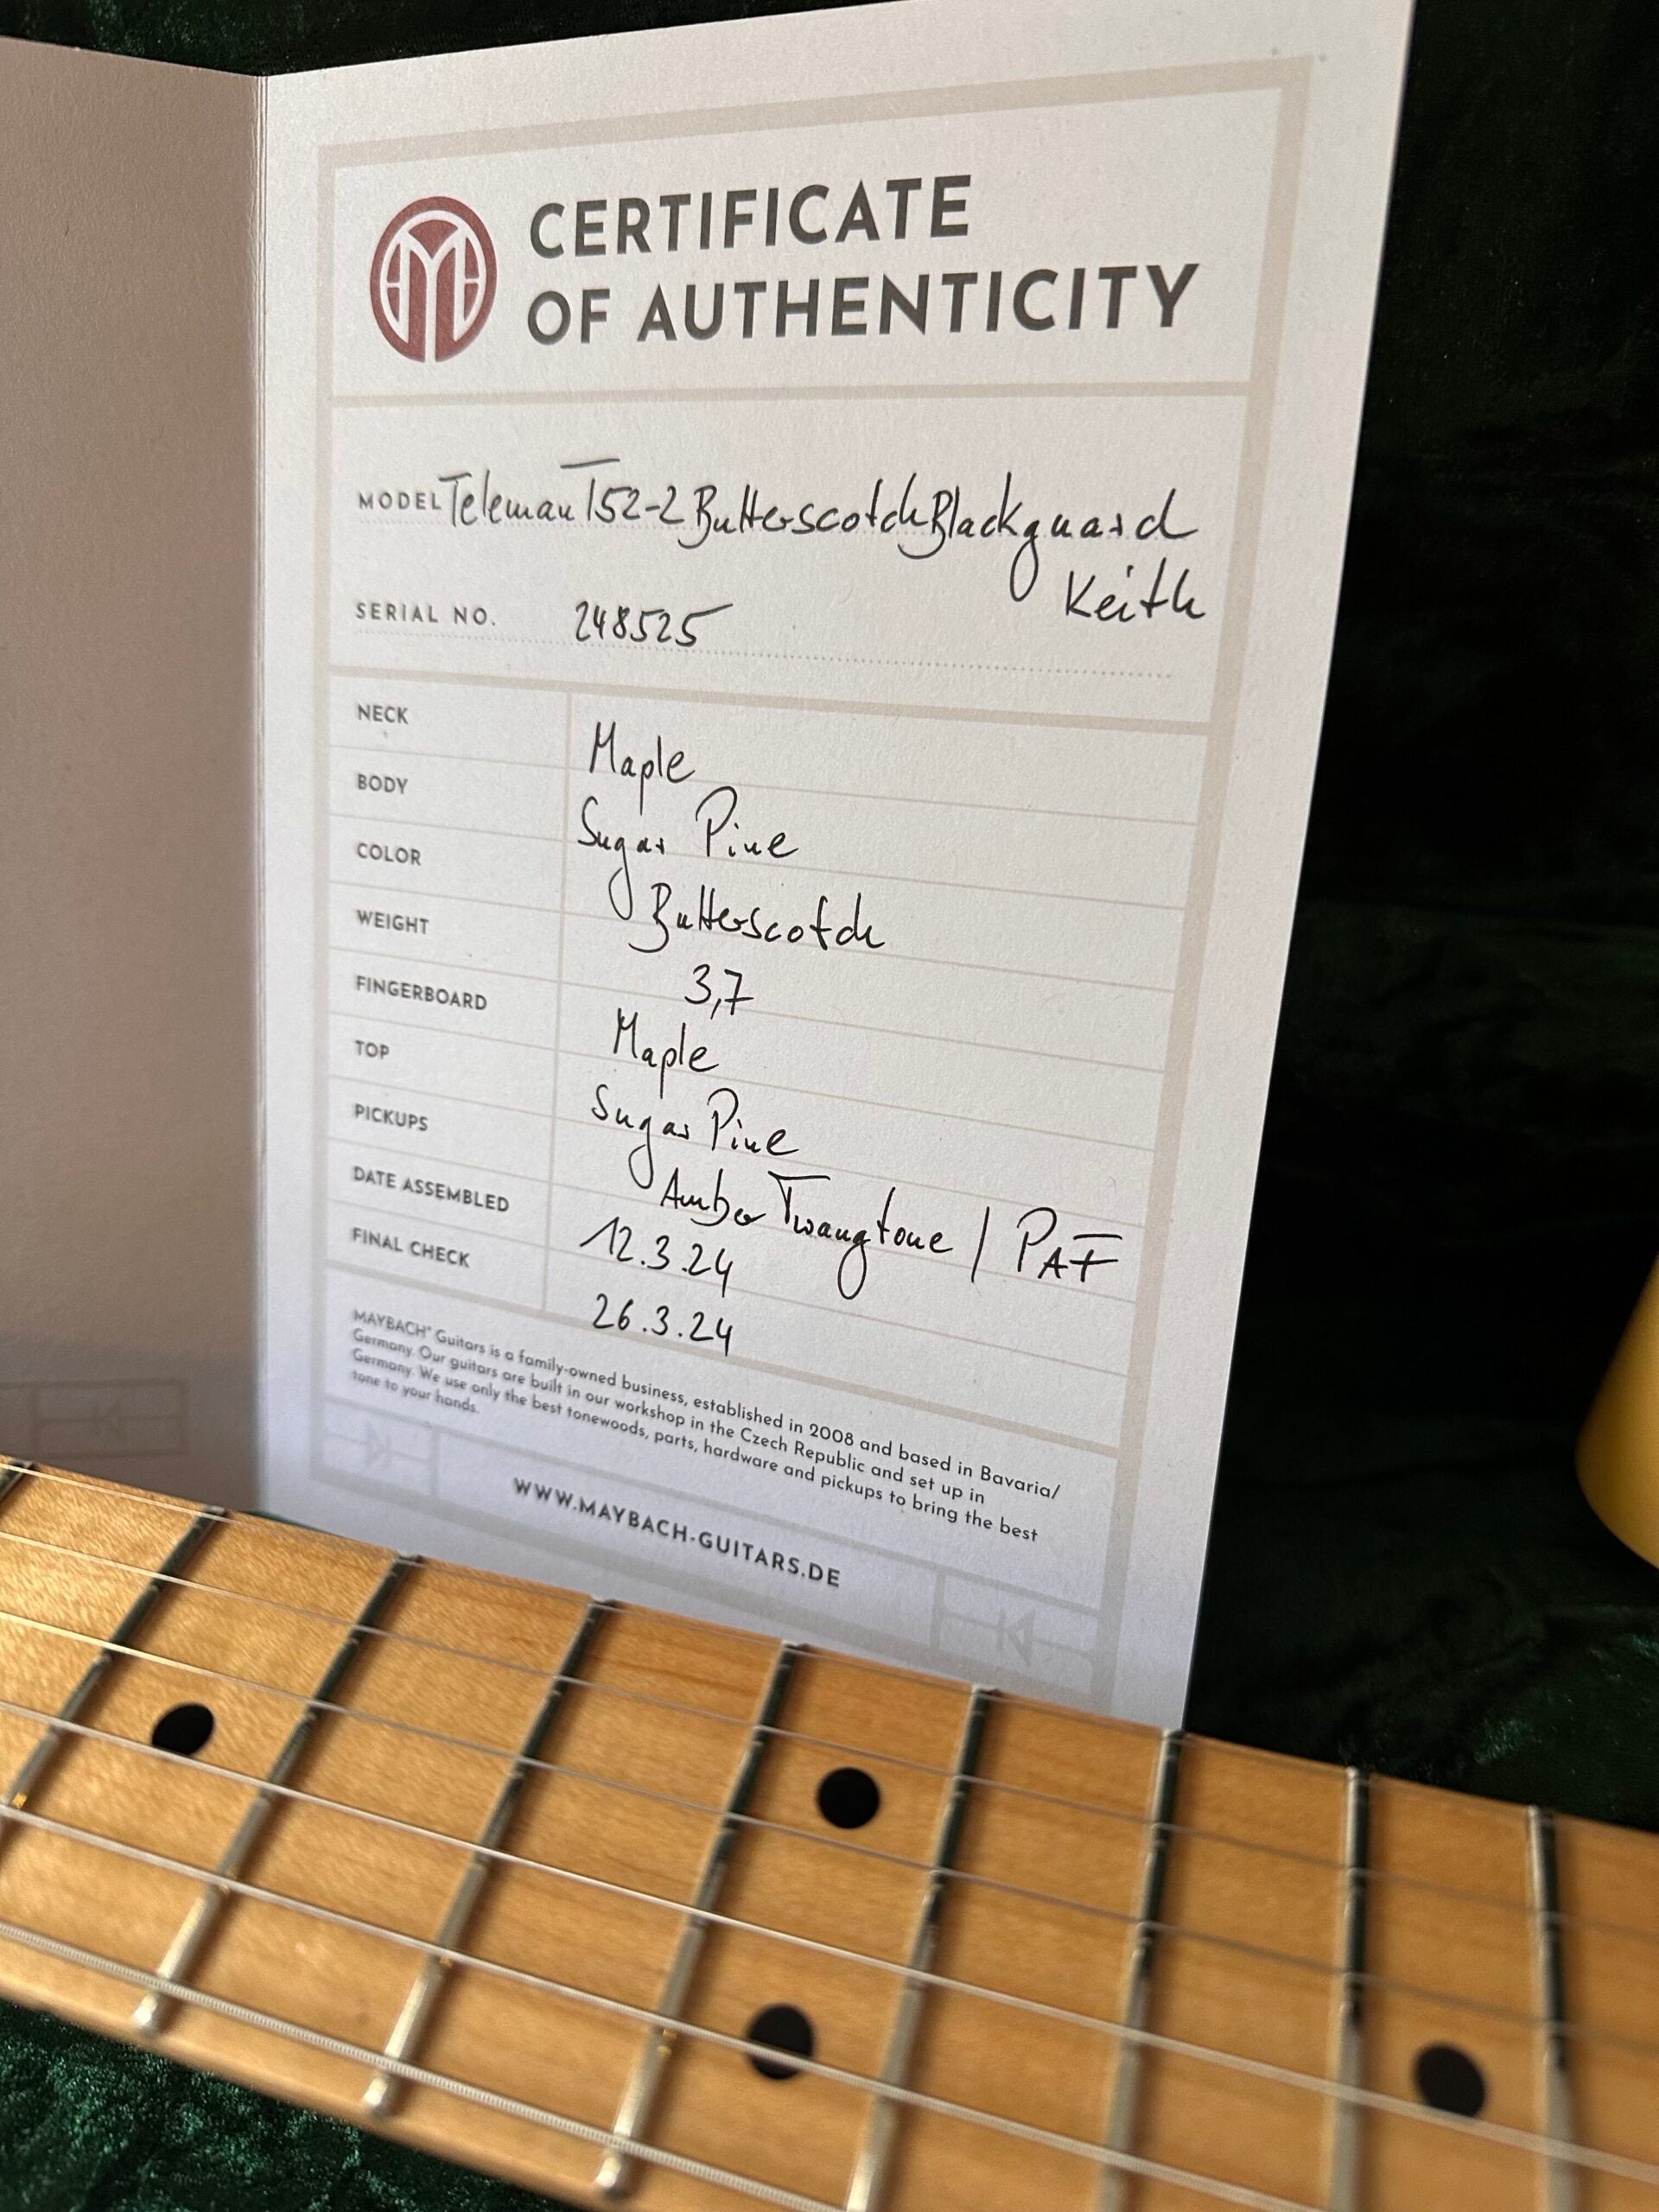 CERTIFICATE
OF AUTHENTICITY
MODEL Teleman T52-2 Butterscotch Blackguard
Keith
SERIAL NO. 248525
NECK Maple
BODY Sugar Pine
COLOR Butterscotch
WEIGHT 3,7
FINGERBOARD Maple
TOP Sugar Pine
PICKUPS Amber Twangtone / PAF
DATE ASSEMBLED 12.3.24
FINAL CHECK 26.3.24
MAYBACH® Guitars is a family-owned business, established in 2008 and based in Bavaria/
Germany. Our guitars are built in our workshop in the Czech Republic and set up in
Germany. We use only the best tonewoods, parts, hardware and pickups to bring the best
tone to your hands.
WWW.MAYBACH-GUITARS.DE